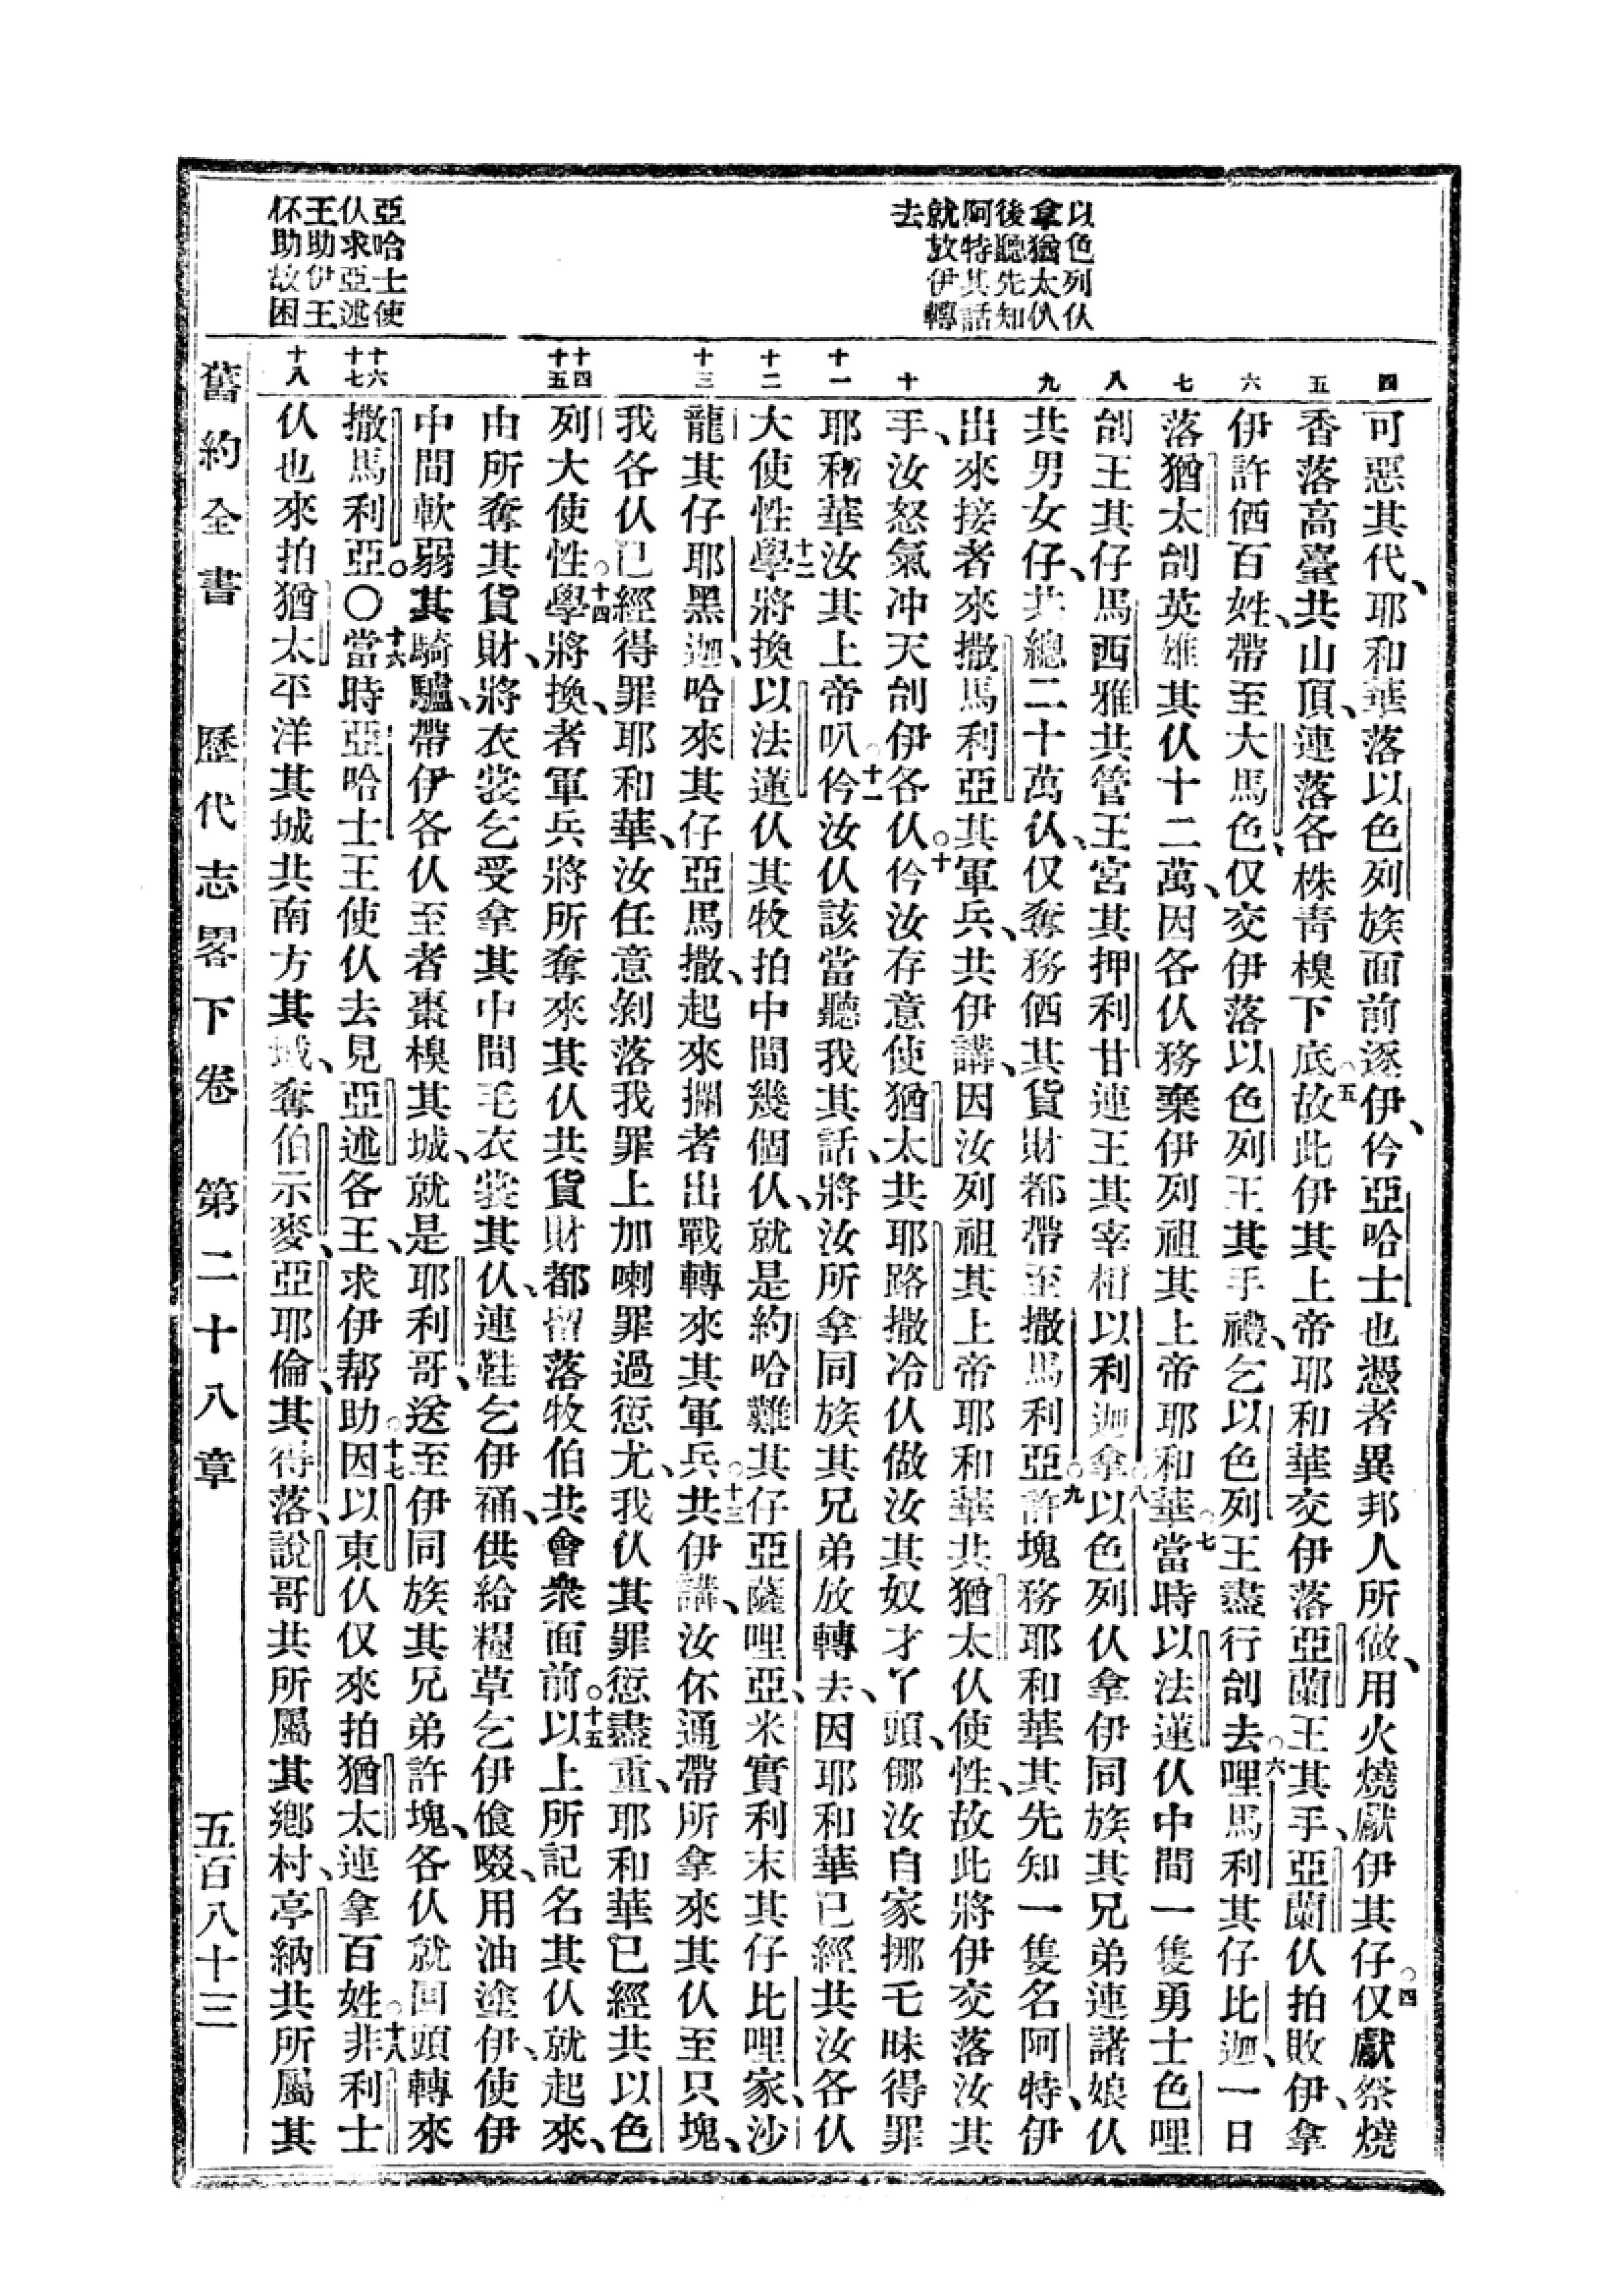 以色列仫
拿猶太仫
後聽先知
阿特其話
就放伊轉
去
亞哈士使
仫求亞述
王助伊王
伓助故困
四
五
六
七
八
九
十
十一
十二
十三
十四
十五
十六
十七
十八
可惡其代、耶和華落以色列族面前逐伊、仱亞哈士也憑者異邦人所做、用火燒獻伊其仔。四仅獻祭燒
香落高臺共山頂、連落各株靑樹下底。五故此伊其上帝耶和華交伊落亞蘭王其手、亞蘭仫拍敗伊、拿
伊許㑚百姓、帶至大馬色、仅交伊落以色列王其手禮、乞以色列王盡行刣去。六哩馬利其仔比迦、一日
落猶太刣英雄其仫十二萬、因各仫務棄伊列祖其上帝耶和華。七當時以法蓮仫中間一隻勇士色哩
刣王其仔馬西雅共管王宮其押利甘連王其宰相以利迦拿。八以色列仫拿伊同族其兄弟連諸娘仫
共男女仔、共總二十萬仫、仅奪務㑚其貨財都帶至撒馬利亞。九許塊務耶和華其先知一隻名阿特、伊
出來接者來撒馬利亞其軍兵、共伊講、因汝列祖其上帝耶和華共猶太仫使性、故此將伊交落汝其
手、汝怒氣冲天刣伊各仫。十仱汝存意使猶太共耶路撒冷仫做汝其奴才丫頭、㑚汝自家挪乇昧得罪
耶和華汝其上帝叭。十一仱汝仫該當聽我其話、將汝所拿同族其兄弟放轉去、因耶和華已經共汝各仫
大使性學。十二將換以法蓮仫其牧拍中間幾個仫、就是約哈難其仔亞薩哩亞、米實利末其仔比哩家、沙
龍其仔耶黑迦、哈來其仔亞馬撒、起來攔者出戰轉來其軍兵。十三共伊講、汝伓通帶所拿來其仫至只塊、
我各仫已經得罪耶和華、汝任意剁落我罪上加喇罪過愆尤、我仫其罪愆盡重、耶和華已經共以色
列大使性學。十四將換者軍兵將所奪來其仫共貨財都留落牧伯共會衆面前。十五以上所記名其仫就起來、
由所奪其貨財、將衣裳乞受拿其中間毛衣裳其仫、連鞋乞伊䘼、供給糧草乞伊飡啜、用油塗伊、使伊
中間軟弱其騎驢、帶伊各仫至者棗樹其城、就是耶利哥、送至伊同族其兄弟許塊、各仫就囬頭轉來
撒馬利亞。〇十六當時亞哈士王使仫去見亞述各王、求伊幫助。十七因以東仫仅來拍猶太連拿百姓。十八非利士
仫也來拍猶太平洋其城共南方其城、奪伯示麥、亞耶倫、其得落、說哥共所屬其鄉村、亭納共所屬其
舊約全書　歷代志畧下卷　第二十八章　五百八十三